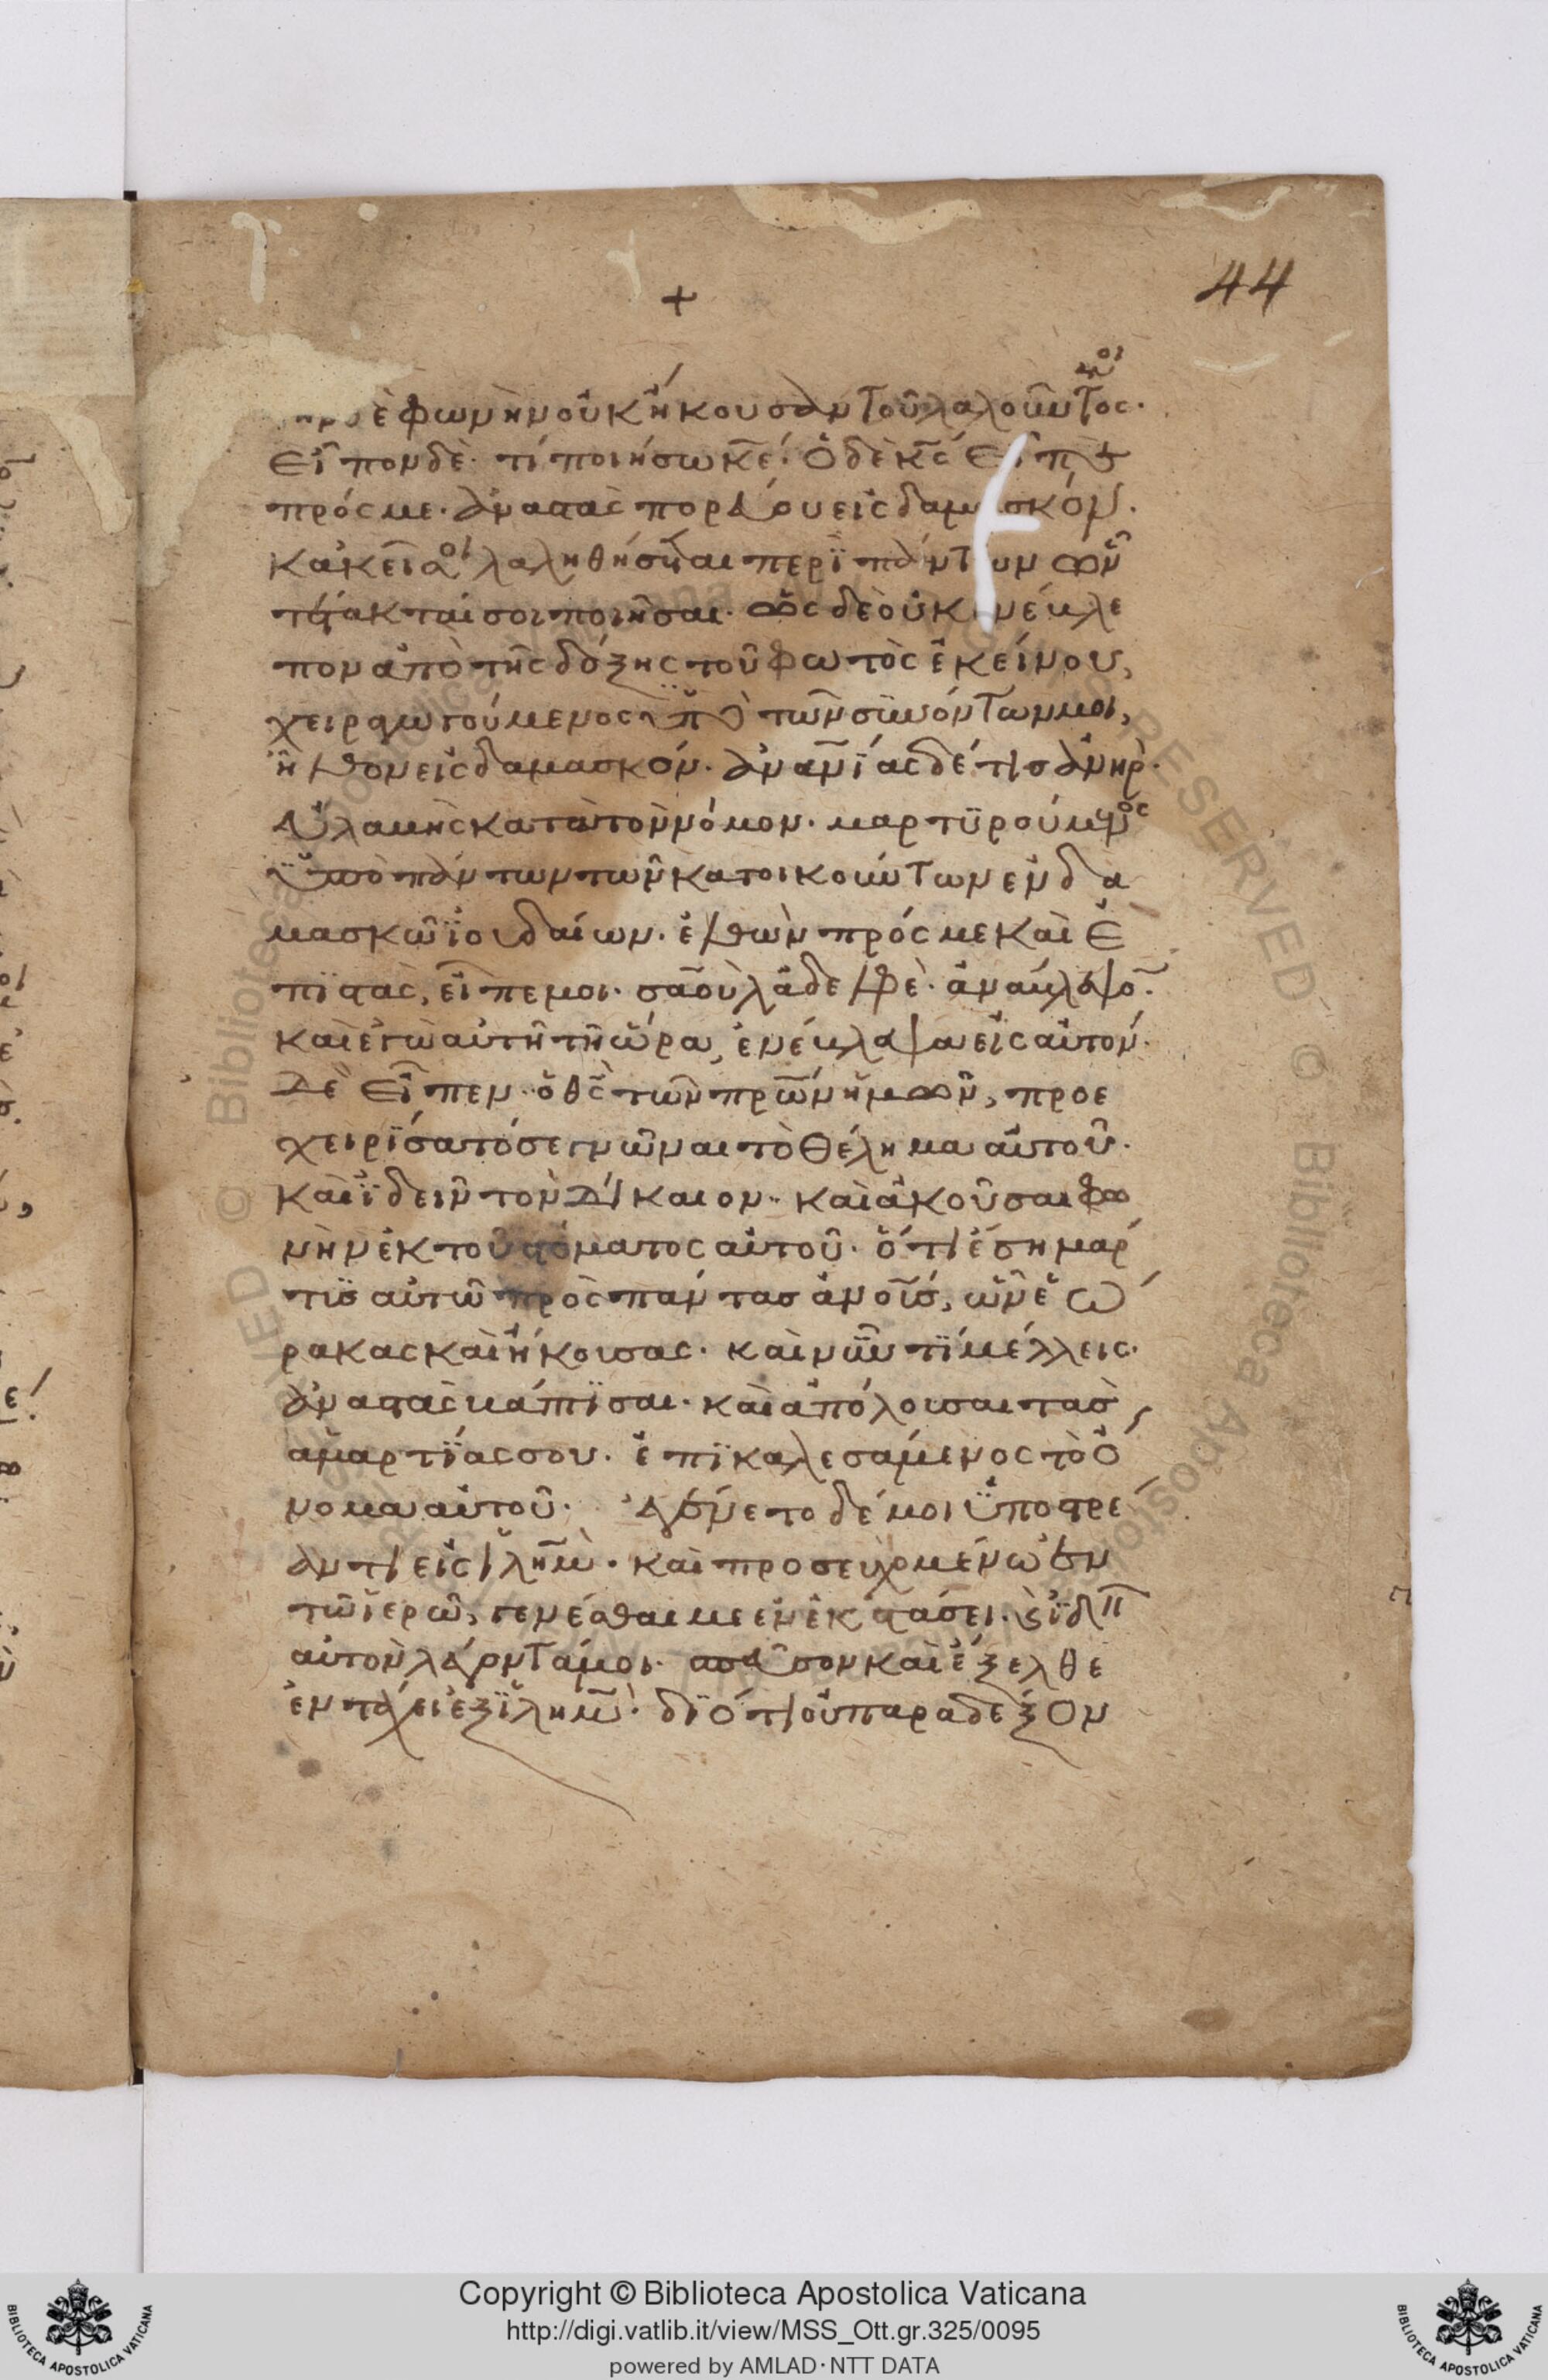 44
+
μοι
τὴν δὲ φωνὴν οὐκ ἤκουσαν τοῦ λαλοῦντος·
εἶπον δὲ· τί ποιήσω κε̄· ὁ δὲ κς̄ εἶπε
πρός με· ἀναστὰς πορεύου εἰς δαμασκόν·
κακεῖ σοι λαληθήσεται περὶ πάντων ὧν
τέτακταί σοι ποιῆσαι· ὡς δὲ οὐκ ἐνέβλε
πον ἀπὸ τῆς δόξης τοῦ φωτὸς ἐκείνου,
χειραγωγούμενος ὑπὸ τῶν συνόντων μοι,
ἦλθον εἰς δαμασκόν· ἀνανίας δέ τις ἀνὴρ·
εὐλαβὴς κατὰ τὸν νόμον· μαρτυρούμενος
ὑπὸ πάντων τῶν κατοικούντων ἐν δα
μασκῶ ϊουδαίων· ἐλθὼν πρός με καὶ ἐ
πιστὰς, εἶπέ μοι· σαοὺλ ἀδελφὲ· ἀνάβλεψον·
καὶ ἐγὼ αὐτῆ τῆ ὥρα, ἐνέβλεψα εἰς αὐτόν·
δὲ εἶπεν· ὁ θς̄ τῶν πρων ἡμῶν, προε
χειρίσατό σε γνῶναι τὸ θέλημα αὐτοῦ·
καὶ ϊδεῖν τὸν δίκαιον· καὶ ἀκοῦσαι φω
νὴν ἐκ τοῦ στόματος αὐτοῦ· ὅτι ἔση μάρ
τυς αὐτῶ πρὸς πάντας ἀνους, ὧν ἑώ
ρακας καὶ ἤκουσας· καὶ νῦν τί μέλλεις·
ἀναστὰς βάπτισαι· καὶ ἀπόλουσαι τὰς
ἁμαρτίας σου· ἐπικαλεσάμενος τὸ ὄ
νομα αὐτοῦ· ἐγένετο δέ μοι ὑποστρέ
αντι εἰς ιλημ· καὶ προσευχομένω ἐν
τῶ ἱερῶ, γενέσθαι με ἐν ἐκστάσει· καὶ ϊδεῖν
αὐτὸν λέγοντά μοι· σπεῦσον καὶ ἔξελθε
ἐν τάχει ἐξ ϊλημ· διότι οὐ παραδέξον
Copyright © Biblioteca Apostolica Vaticana
http://digi.vatlib.it/view/MSS_Ott.gr.325/0095
powered by AMLAD·NTT DATA